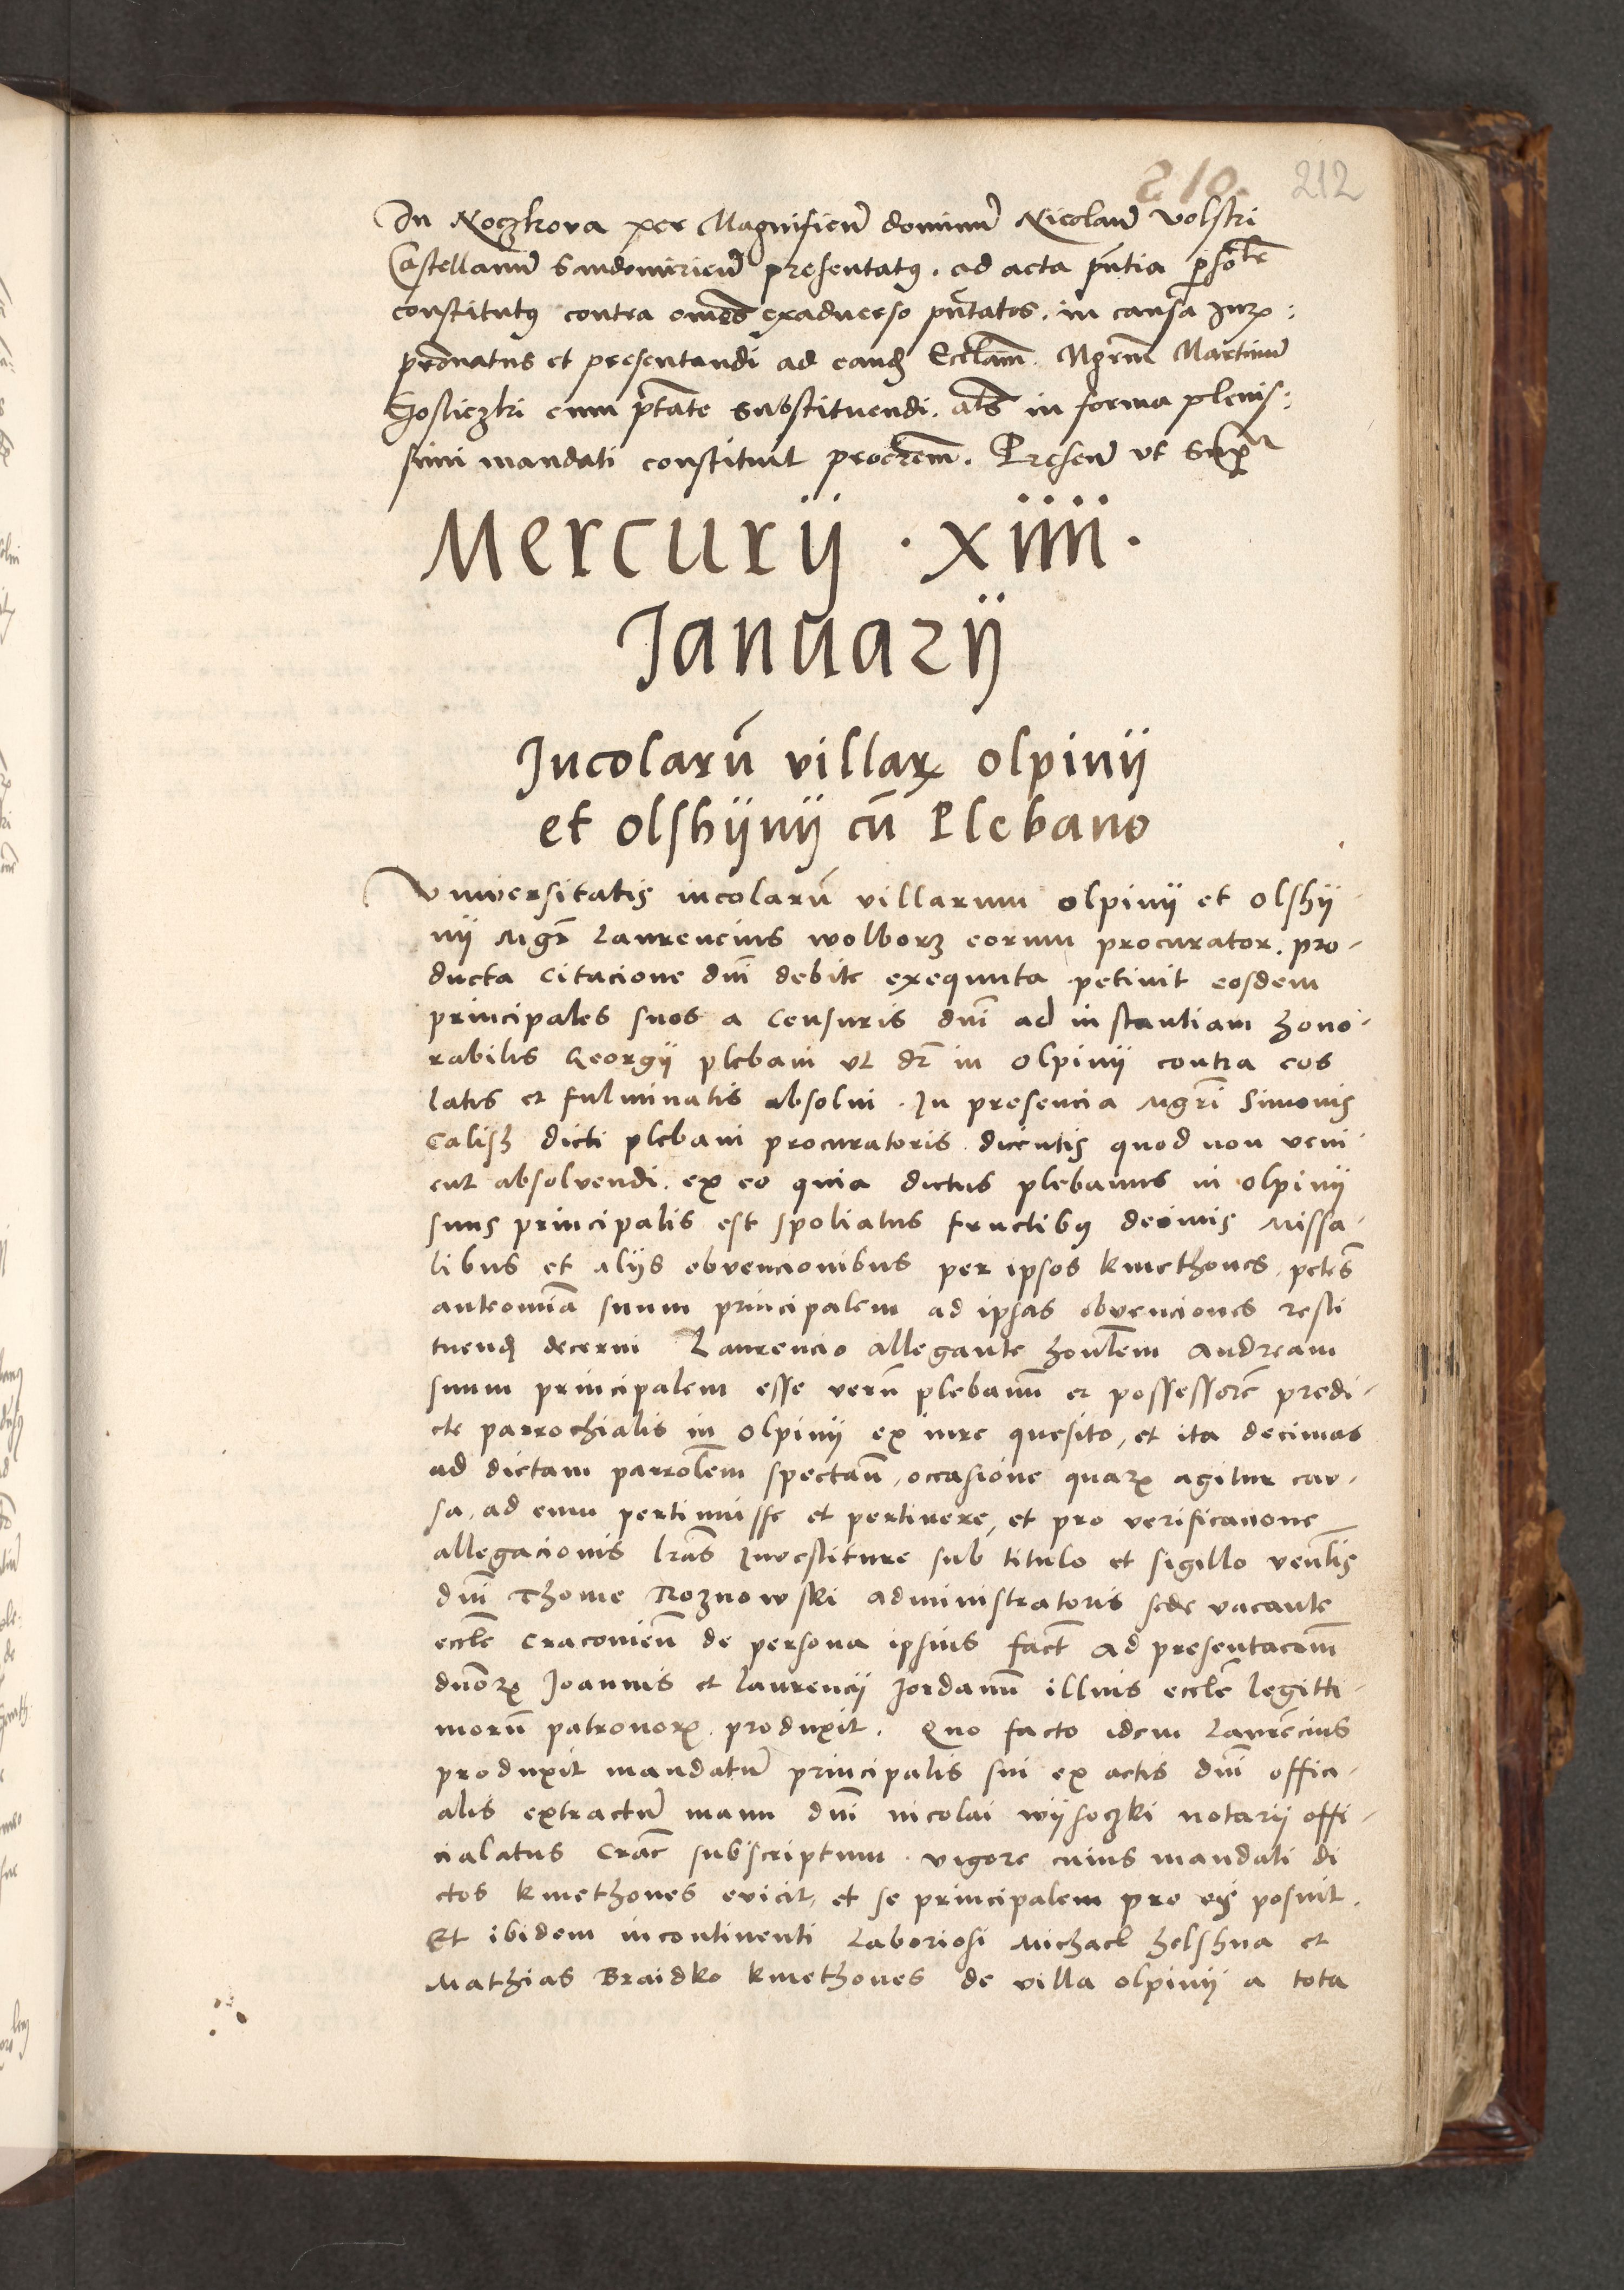 210. 212
In Koczkova per Magnificu͞ dominu͞ Nicolau͞ Volski
Castellanu͞ Sandomirien͞ presentatꝰ . ad acta pn͞tia ꝑsol͞r
constitutꝰ contra om͞es exaduerso pn͞tatos . in causa Jurꝝ :
pronatus et presentandi ad eandꝫ Eccl͞am . Mgr͞m Martinu͞
cum pt͞ate substituendi . al͞s in forma plenis:
simi mandati constituit procr͞em . Presen͞ vt Supra
Mercurij · xiiii ·
Januarij
Incolaru͞ villarꝝ olpinij
et olshijnij cu͞ Plebano
Vniuersitatis incolaru͞ villarum olpinij et olshij-
nij Mgr͞ Laurencius wolborz eorum procurator . pro-
ducta citacione dn͞i debite exequuta petiuit eosdem
principales suos a censuris dn͞i ad instantiam hono-
rabilis Georgij plebani vt dr͞ in olpinij contra eos
latis et fulminatis absolui . In presencia Mgr͞i Simonis
Calisz dicti plebani procuratoris . dicentis quod non veni-
ent absolvendi . ex eo quia dictus plebanus in olpinij
suus principalis est spoliatus fructibꝰ decimis Missa-
libus et alijs obvencionibus per ipsos kmethones . pete͞s
anteomi͞a suum principalem ad ipsas obvenciones resti
tuendꝫ decerni Laurencio allegante honl͞em Andream
suum principalem esse veru͞ plebanu͞ et possessore͞ predi-
cte parrochialis in olpinij ex iure quesito, et ita decimas
ad dictam parrol͞em spectan͞, occasione quarꝝ agitur cav-
sa, ad eum pertinuisse et pertinere, et pro verificacione
allegacionis lr͞as Investiture sub titulo et sigillo venl͞is
dn͞i Thome Roznowski administratoris sede vacante
eccl͞e Cracovien͞ de persona ipsius fact͞ ad presentaco͞em
dn͞orꝝ Joannis et Laurencij Jordanu͞ illius eccl͞e legitti-
moru͞ patronorꝝ . produxit . Quo facto idem Laure͞cius
produxit mandatu͞ principalis sui ex actis dn͞i offici-
alis extractu͞ manu dn͞i nicolai wijsoczki notarij offi-
cialatus Crac͞ subscriptum . vigore cuius mandati di
ctos kmethones evicit, et se principalem pro eis posuit .
Et ibidem incontinenti Laboriosi Michael helshna et
Mathias Braidko kmethones de villa olpinij a tota